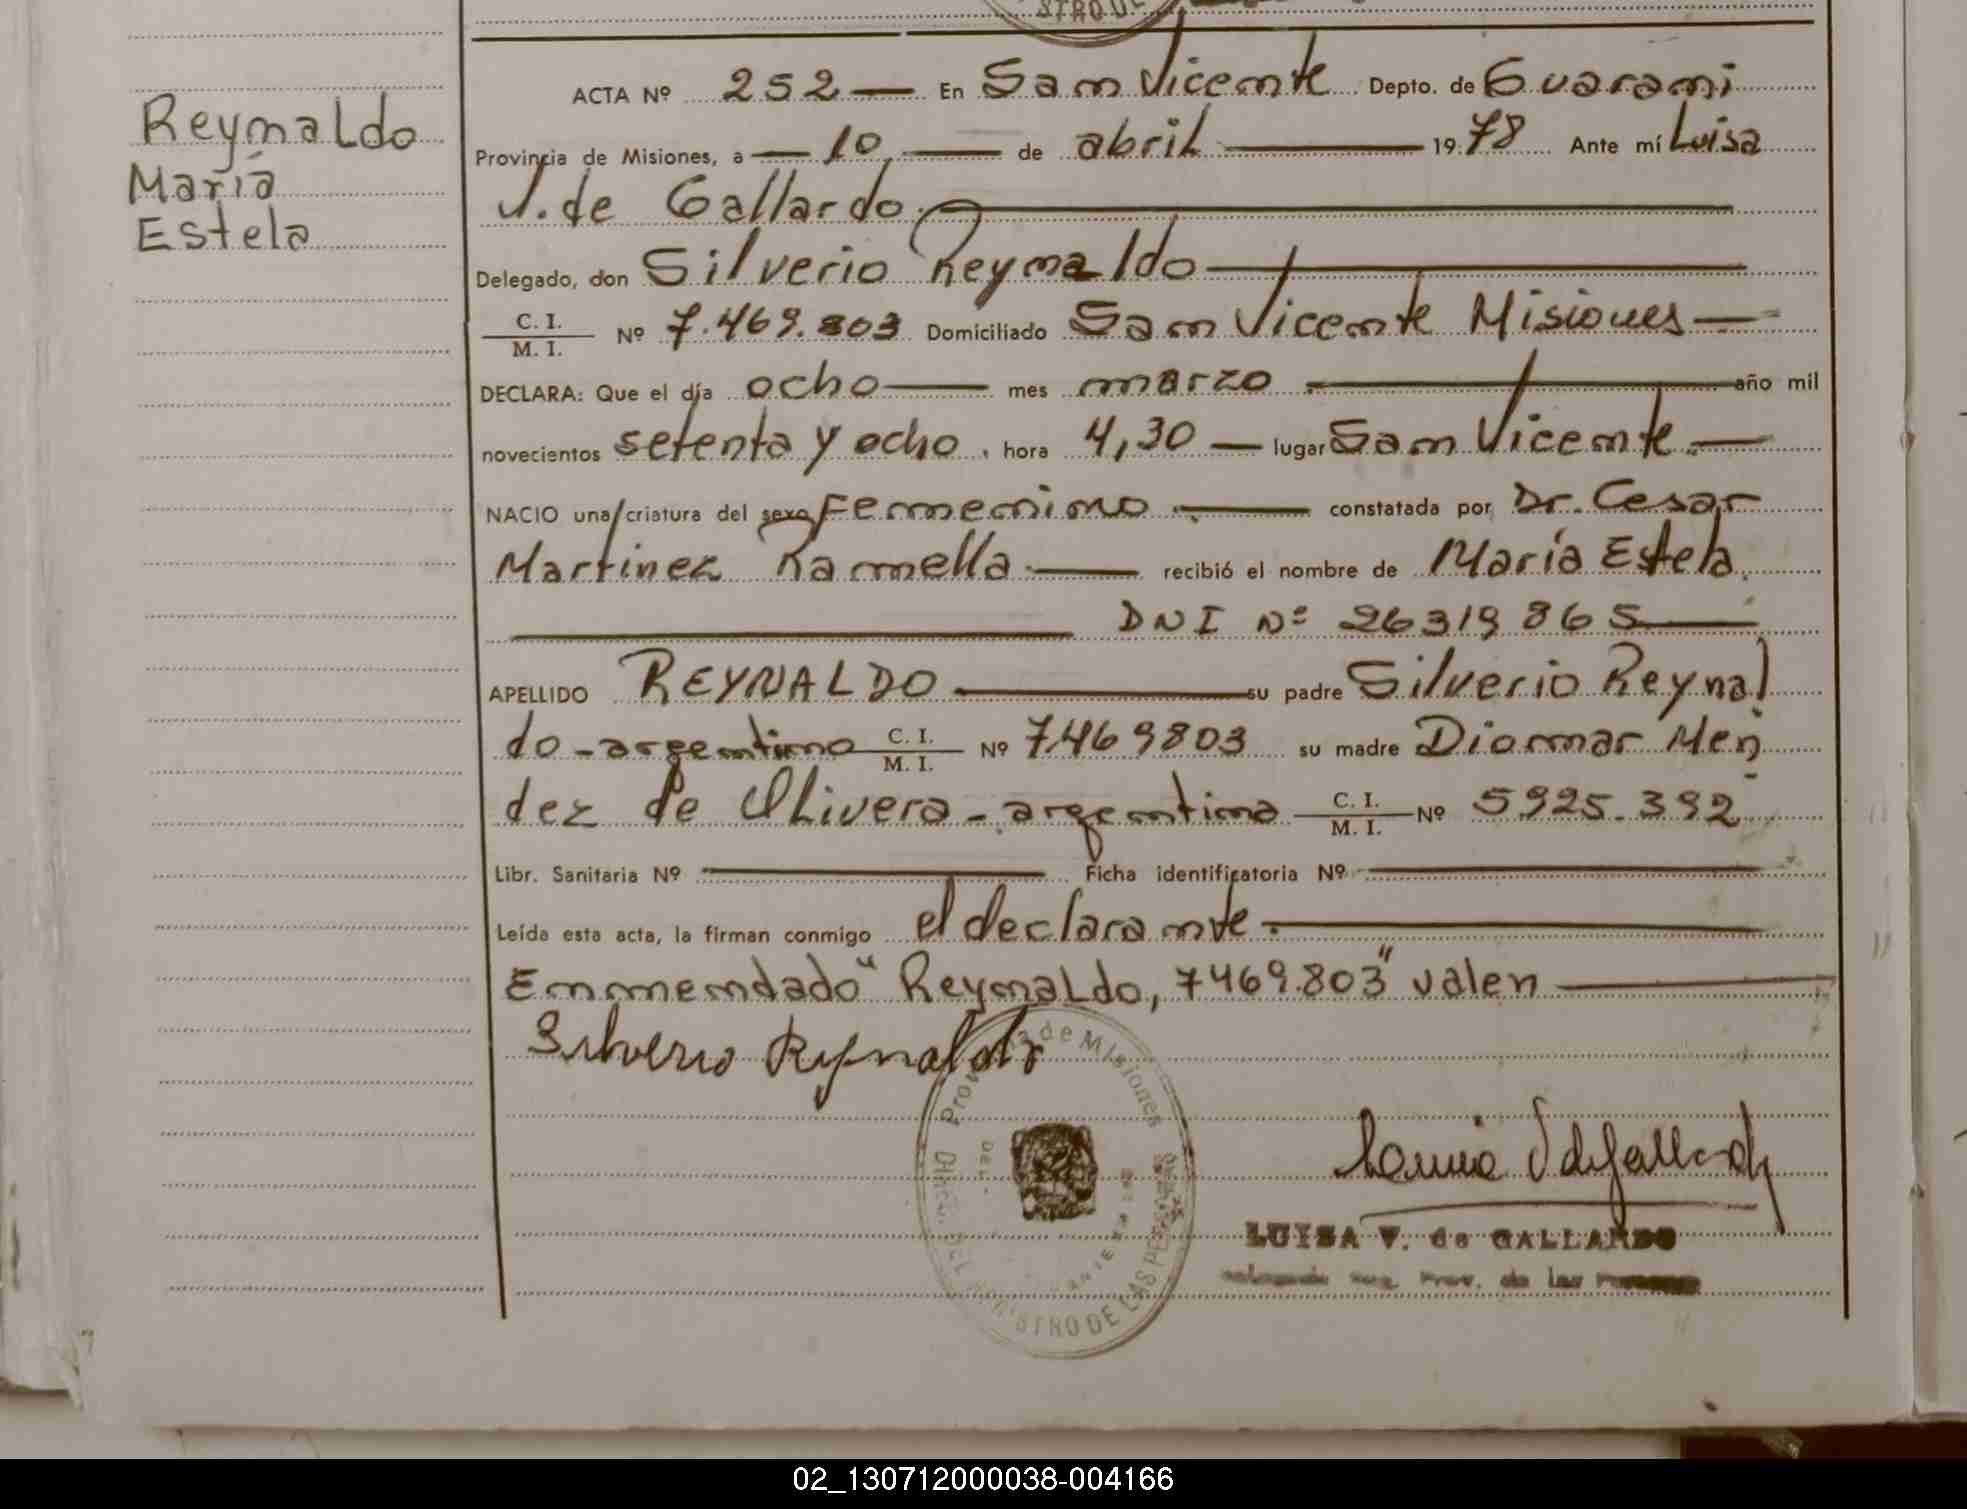 STRO DE
ACTA Nº 252 — En San Vicente Depto. de Guaraní
Reynaldo
María
Estela
Provincia de Misiones, a — 10, — de abril — 1978 Ante mí Luisa
V. de Gallardo. —
Delegado, don Silverio Reynaldo —
C. I. / M. I. Nº 7.469.803 Domiciliado San Vicente Misiones —
DECLARA: Que el día ocho — mes marzo — año mil
novecientos setenta y ocho, hora 4,30 — lugar San Vicente. —
NACIO una criatura del sexo Femenino — constatada por Dr. Cesar
Martinez Ramella — recibió el nombre de María Estela.
— DNI Nº 26319865 —
APELLIDO REYNALDO — su padre Silverio Reynal
do - argentino C. I. / M. I. Nº 7.469803 su madre Diomar Men
dez de Olivera - argentina C. I. / M. I. Nº 5925.392
Libr. Sanitaria Nº — Ficha identificatoria Nº —
Leída esta acta, la firman conmigo el declarante. —
Enmendado "Reynaldo, 7469.803" valen —
Silverio Reynaldo
Provincia de Misiones
DE LAS PERSONAS
LUISA V. de GALLARDO
02_130712000038-004166